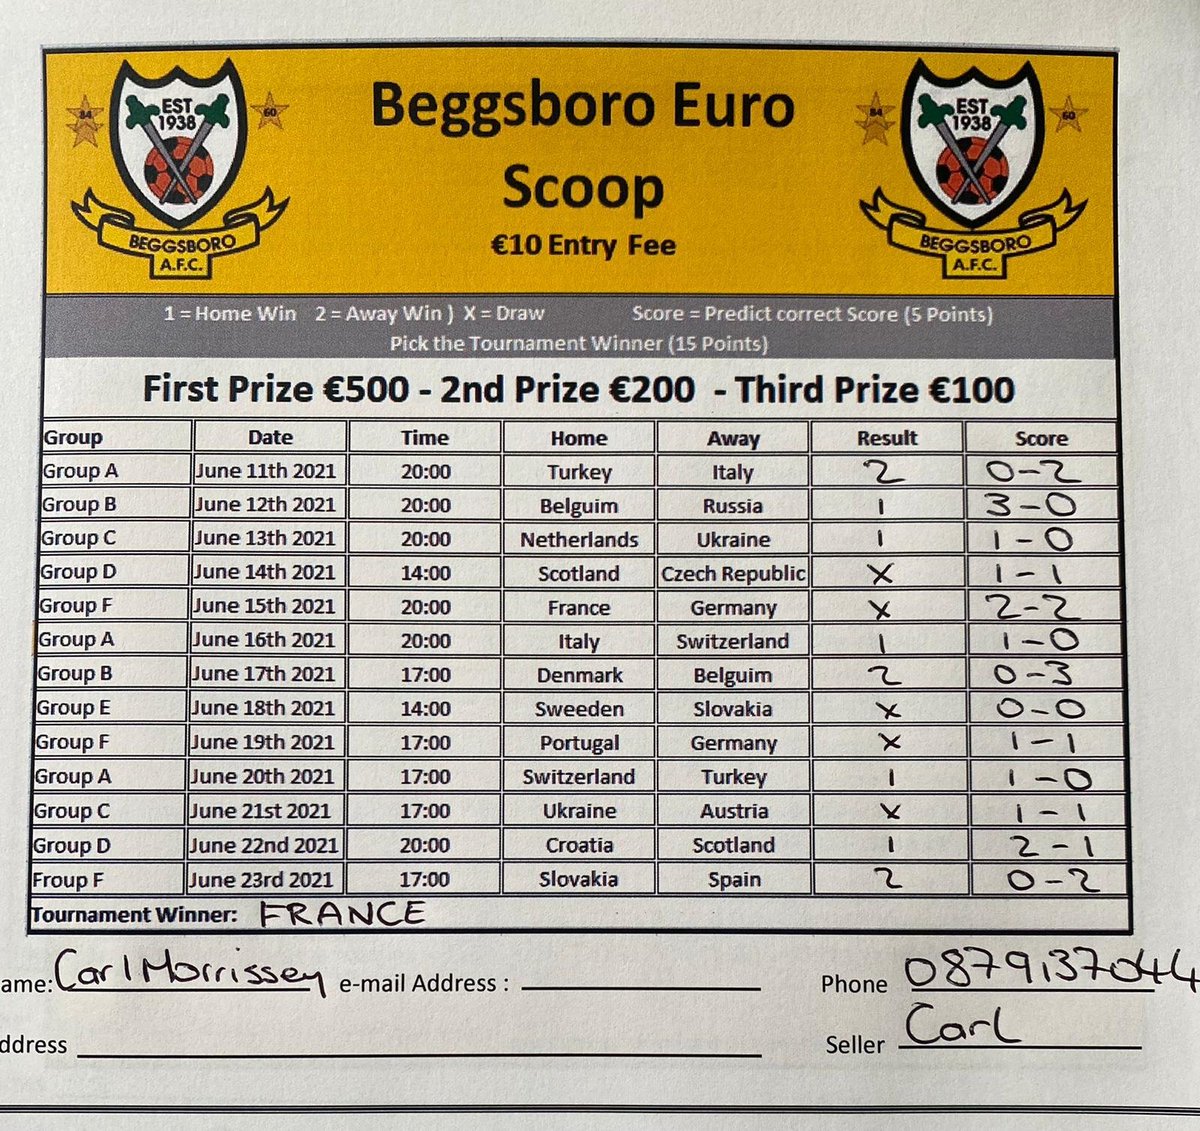 84
60
EST
1938
BEGGSBORO
A.F.C.
Beggsboro Euro
Scoop
€10 Entry Fee
84
60
EST
1938
BEGGSBORO
A.F.C.
1 = Home Win 2 = Away Win ) X = Draw Score = Predict correct Score (5 Points)
Pick the Tournament Winner (15 Points)
First Prize €500 - 2nd Prize €200 - Third Prize €100
Group Date Time Home Away Result Score
Group A June 11th 2021 20:00 Turkey Italy 2 0-2
Group B June 12th 2021 20:00 Belguim Russia 1 3-0
Group C June 13th 2021 20:00 Netherlands Ukraine 1 1-0
Group D June 14th 2021 14:00 Scotland Czech Republic X 1-1
Group F June 15th 2021 20:00 France Germany X 2-2
Group A June 16th 2021 20:00 Italy Switzerland 1 1-0
Group B June 17th 2021 17:00 Denmark Belguim 2 0-3
Group E June 18th 2021 14:00 Sweeden Slovakia X 0-0
Group F June 19th 2021 17:00 Portugal Germany X 1-1
Group A June 20th 2021 17:00 Switzerland Turkey 1 1-0
Group C June 21st 2021 17:00 Ukraine Austria X 1-1
Group D June 22nd 2021 20:00 Croatia Scotland 1 2-1
Froup F June 23rd 2021 17:00 Slovakia Spain 2 0-2
Tournament Winner: FRANCE
ame: Carl Morrissey e-mail Address : Phone 0879137044
ddress Seller Carl